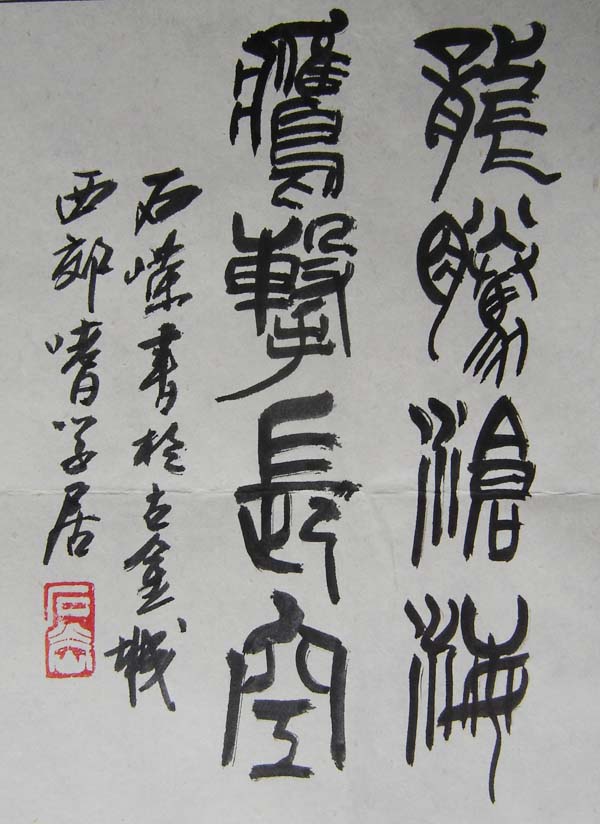 龍騰滄海
鷹擊長空
石嶸書於古金城
西郊嗜学居